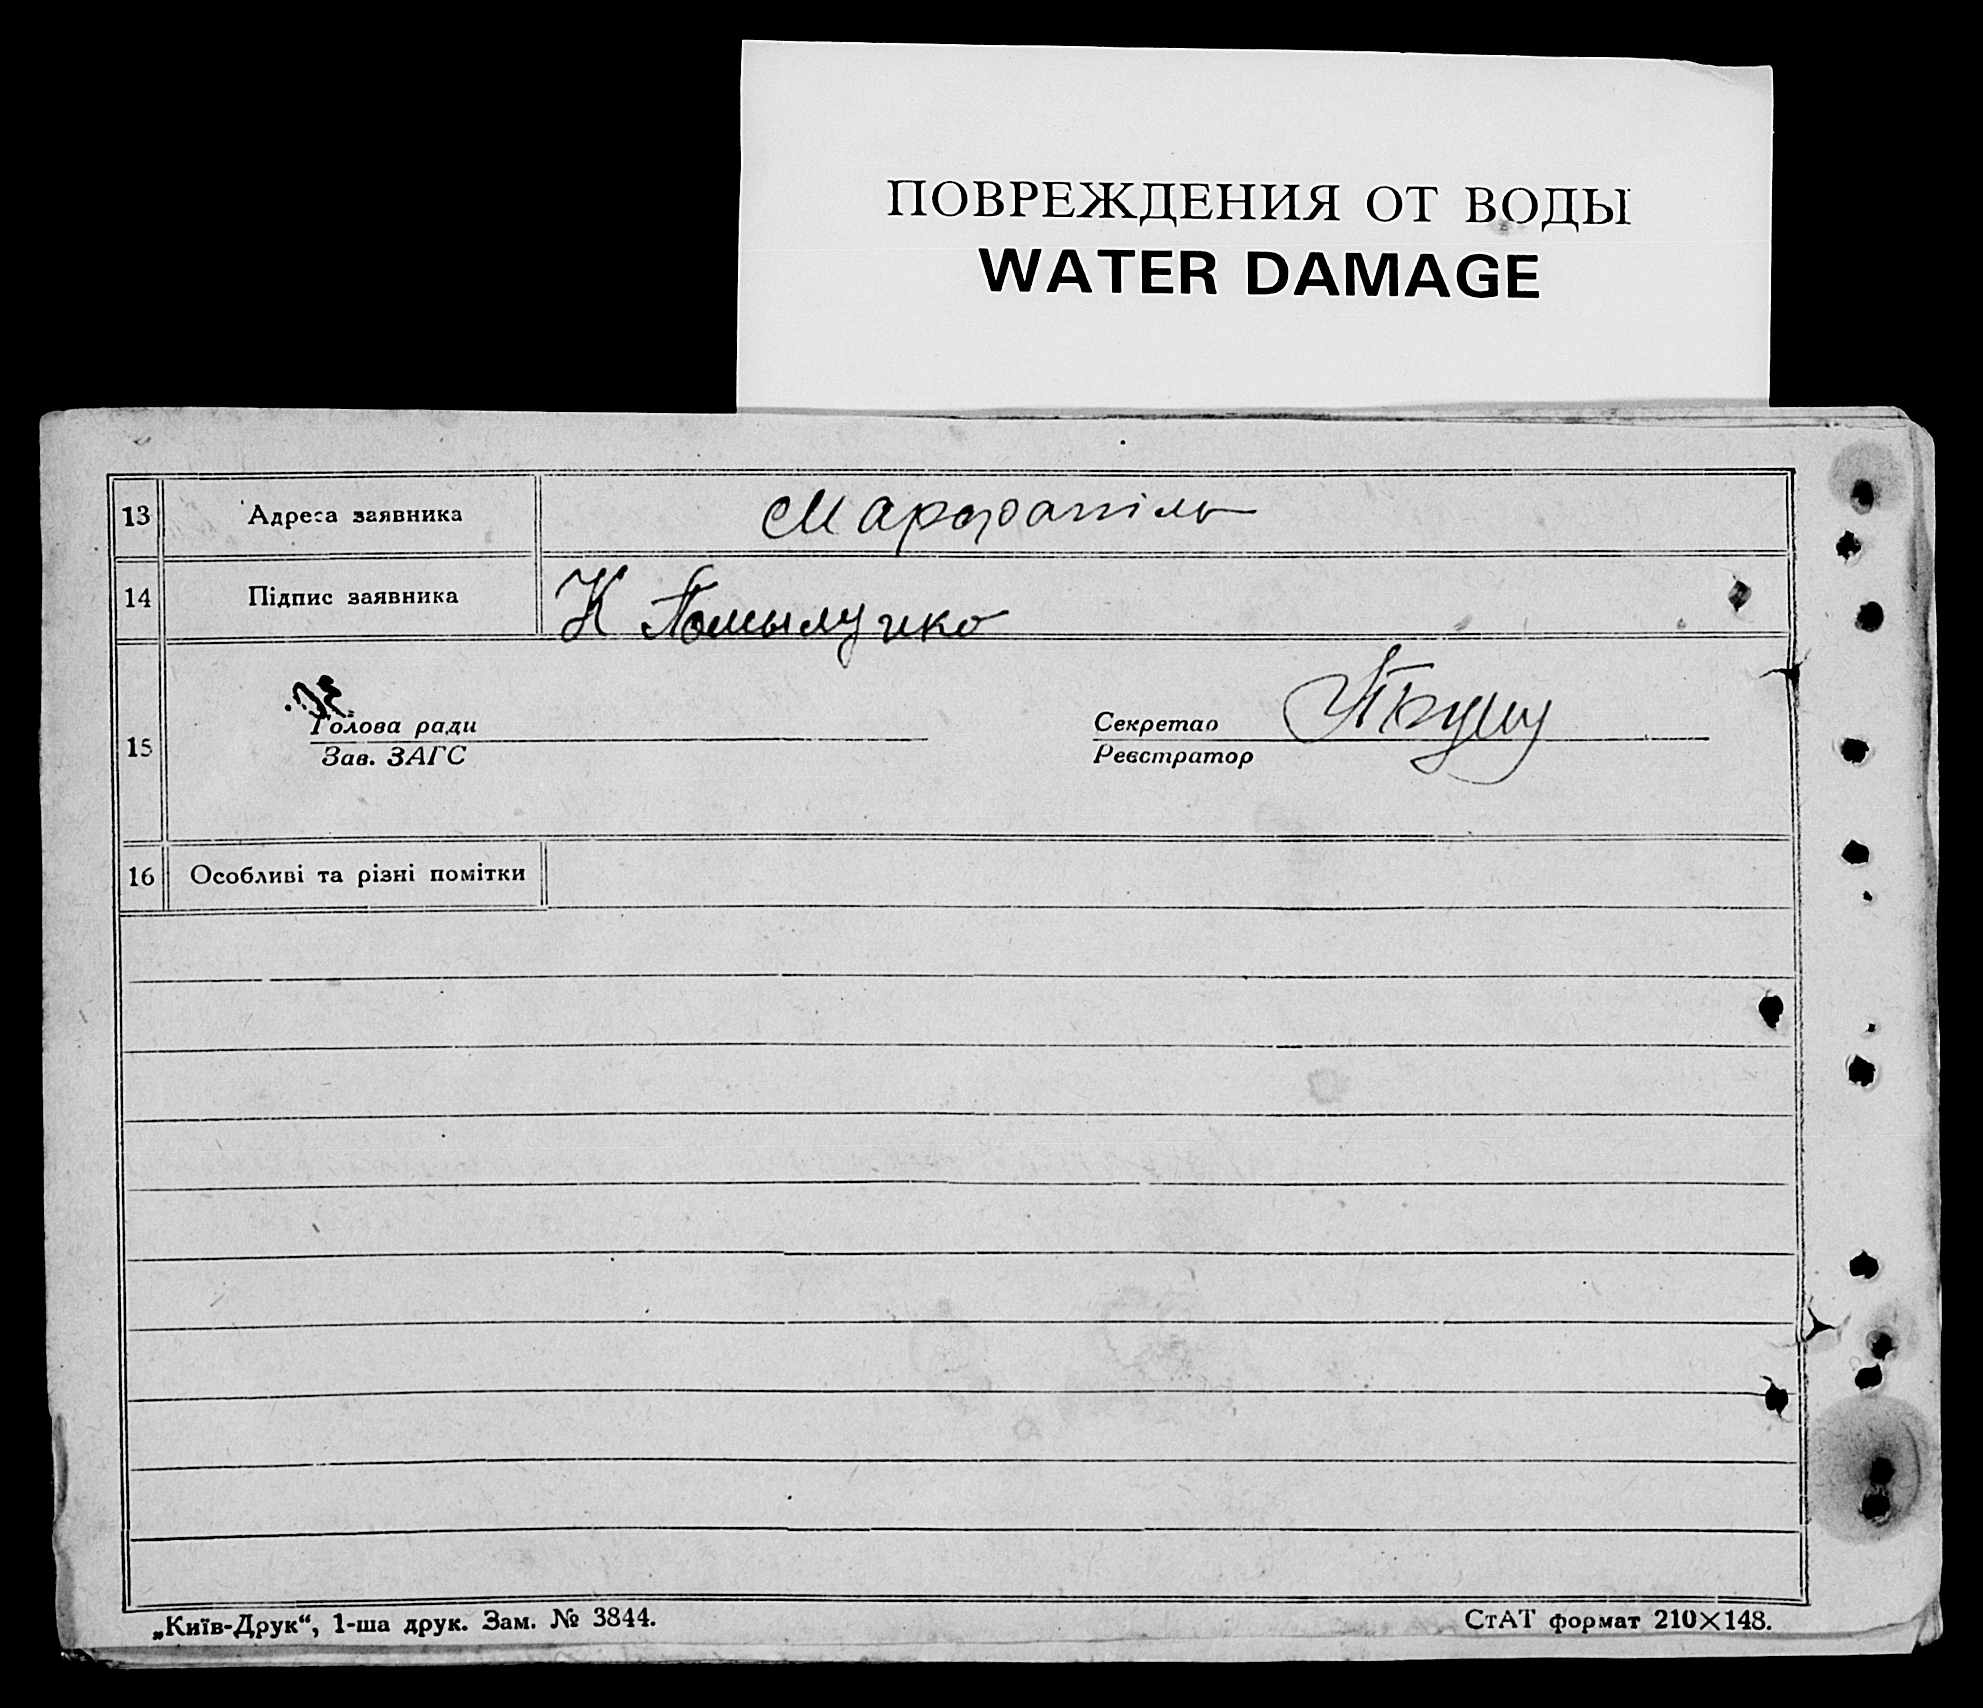 ПОВРЕЖДЕНИЯ ОТ ВОДЫ
WATER DAMAGE
13 Адреса заявника
14 Підпис заявника К
15
Голова ради Секретар
Зав. ЗАГС Реєстратор
16 Особливі та різні помітки
„Київ-Друк“, 1-ша друк. Зам. № 3844.
СтАТ формат 210×148.